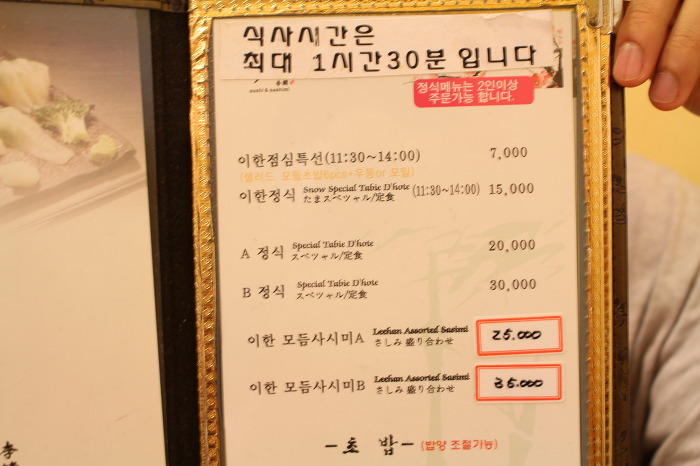 식사시간은
최대 1시간30분 입니다
sushi & sashimi
정식메뉴는 2인이상
주문가능 합니다.
이한점심특선(11:30~14:00) 7,000
(샐러드 모듬초밥6pcs+우동or 모밀)
이한정식 Snow Special Table D'hote (11:30~14:00) 15,000
たまスペツャル/定食
A 정식 Special Table D'hote 20,000
スペツャル/定食
B 정식 Special Table D'hote 30,000
スペツャル/定食
이한 모듬사시미A Leehan Assorted Sasimi 25.000
さしみ 盛り合わせ
이한 모듬사시미B Leehan Assorted Sasimi 35.000
さしみ 盛り合わせ
-초 밥- (밥양 조절가능)